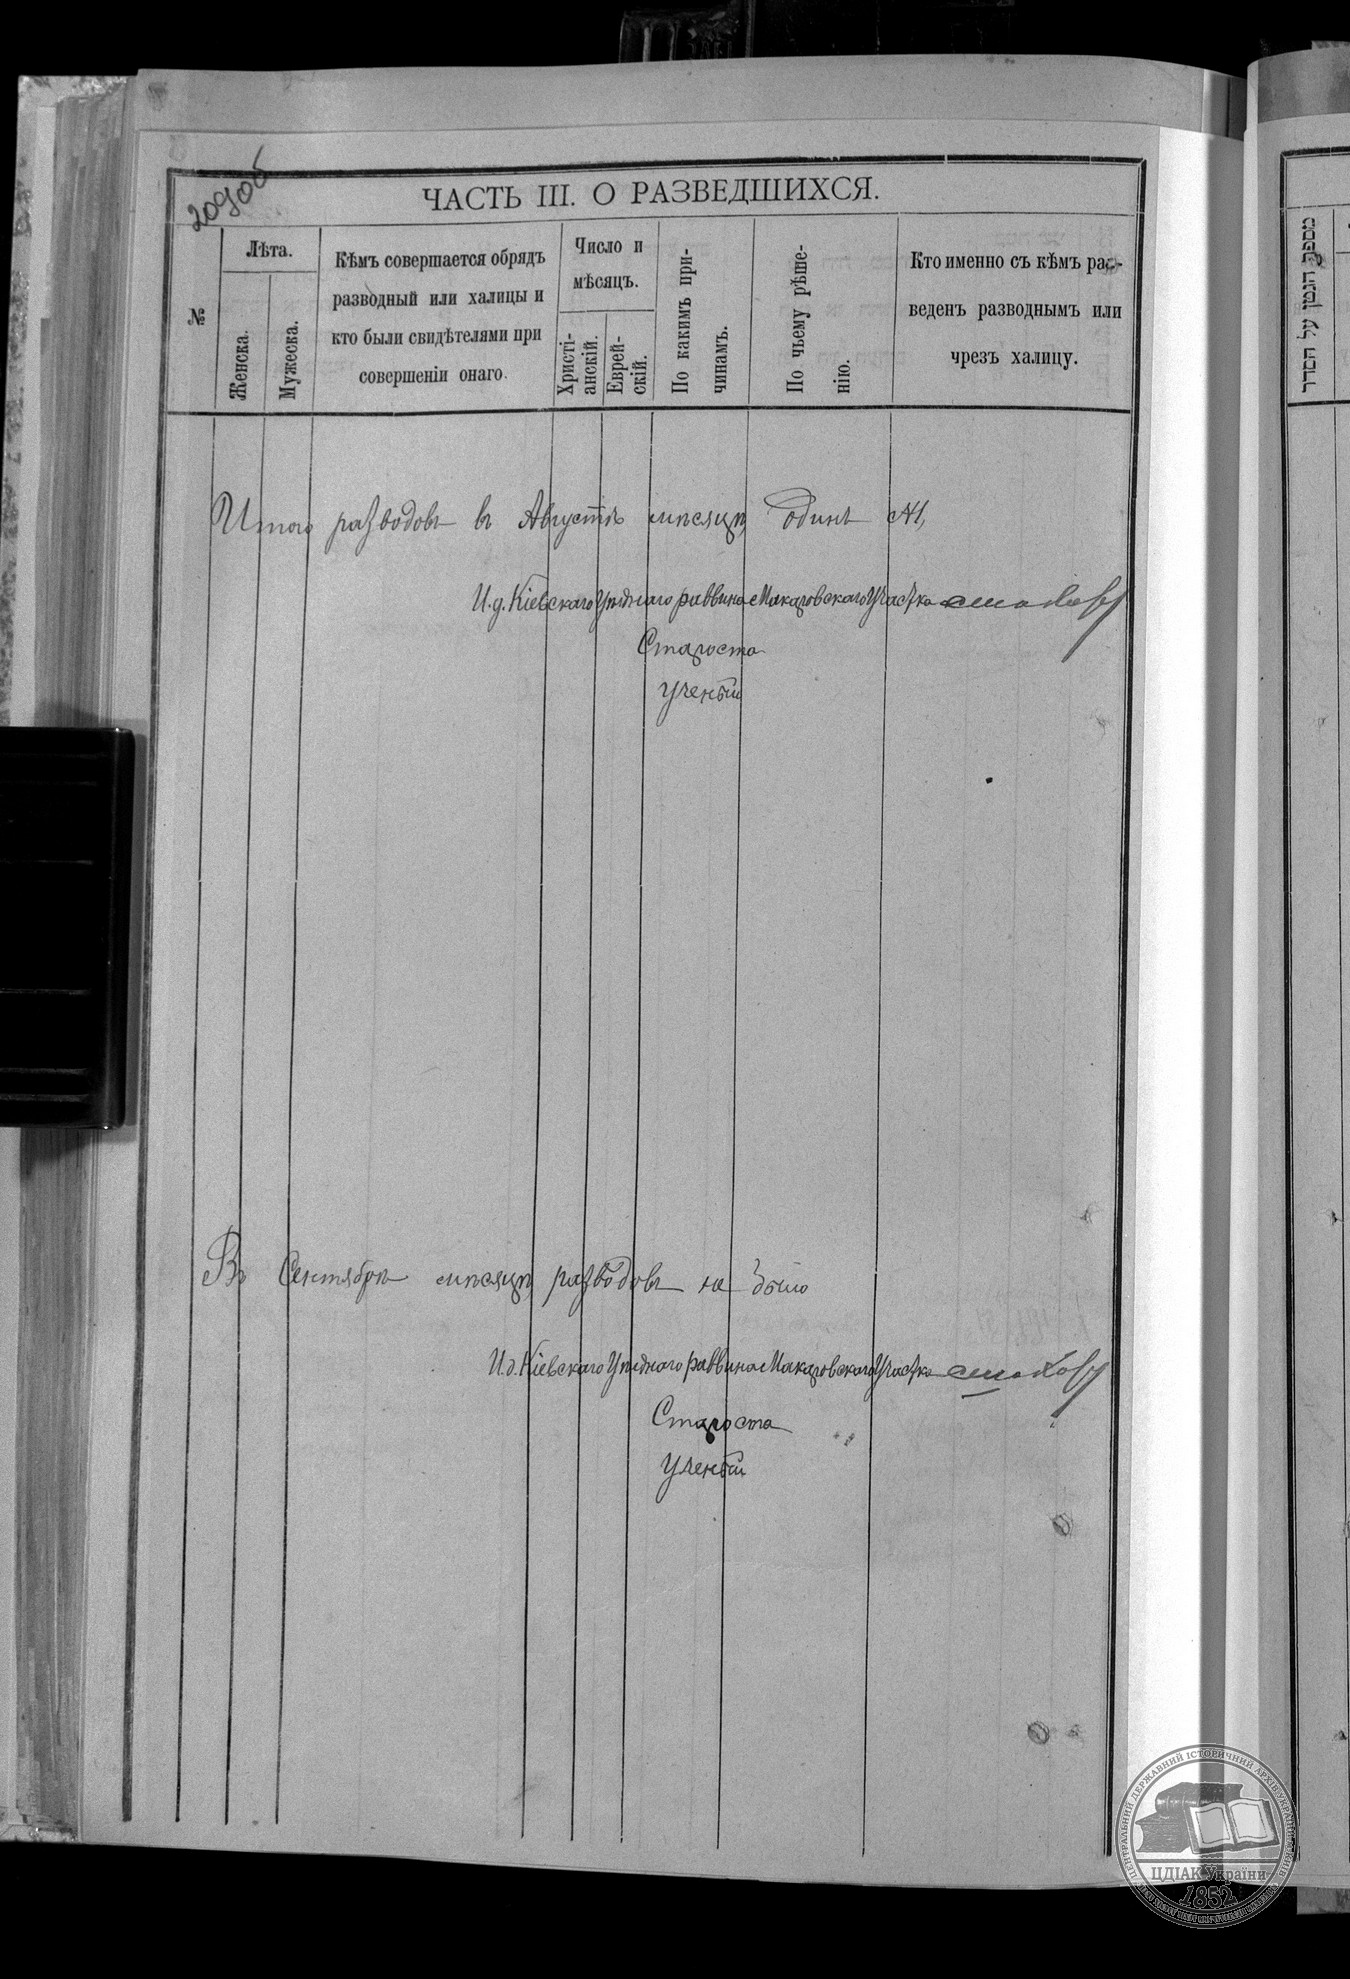 209об
ЧАСТЬ III. О РАЗВЕДШИХСЯ.
№
Лѣта.
Женска.
Мужеска.
Кѣмъ совершается обрядъ
разводный или халицы и
кто были свидѣтелями при
совершеніи онаго.
Число и
мѣсяцъ.
Христі-
анскій.
Еврей-
скій.
По какимъ при-
чинамъ.
По чьему рѣше-
нію.
Кто именно съ кѣмъ раз-
веденъ разводнымъ или
чрезъ халицу.
Итого разводовъ въ Августѣ мѣсяцѣ одинъ №1,
И.д. Кіевскаго Уѣзднаго раввина Макаровскаго Участка
Староста
Ученый
Въ Сентябрѣ мѣсяцѣ разводовъ не было
И.д. Кіевскаго Уѣзднаго раввина Макаровскаго Участка
Староста
Ученый
מספר הגטין על הסדר
ЦЕНТРАЛЬНИЙ ДЕРЖАВНИЙ ІСТОРИЧНИЙ АРХІВ УКРАЇНИ
ЦДІАК України
1852